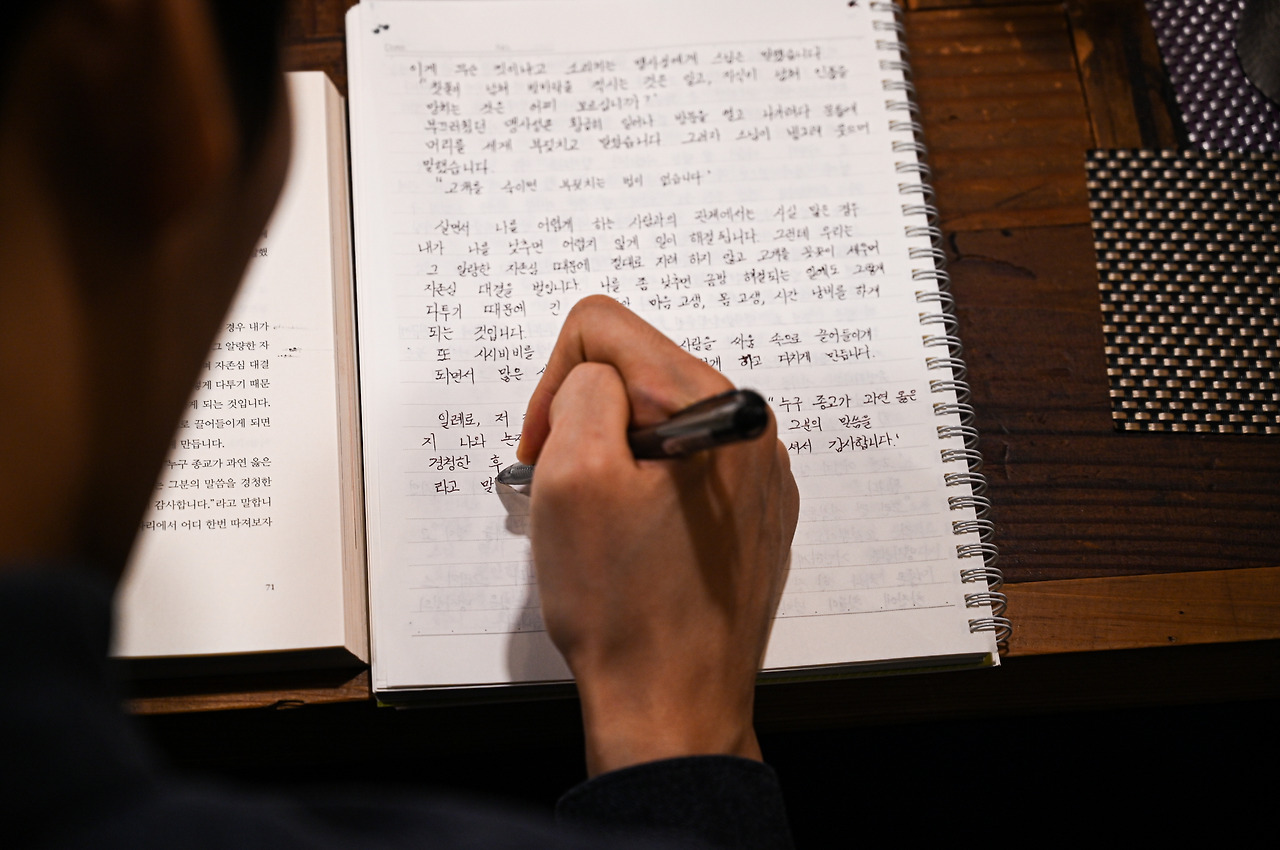 했
경우 내가
그 알량한 자
며 자존심 대결
게 다투기 때문
게 되는 것입니다.
로 끌어들이게 되면
만듭니다.
누구 종교가 과연 옳은
그분의 말씀을 경청한
감사합니다."라고 말합니
자리에서 어디 한번 따져보자
71
이게 무슨 짓이냐고 소리치는 맹사성에게 스님은 말했습니다
"찻물이 넘쳐 방바닥을 적시는 것은 알고, 지식이 넘쳐 인품을
망치는 것은 어찌 모르십니까?"
부끄러웠던 맹사성은 황급히 일어나 방문을 열고 나가려다 문틀에
머리를 세게 부딪치고 말았습니다 그러자 스님이 빙그레 웃으며
말했습니다.
"고개를 숙이면 부딪치는 법이 없습니다"
살면서 나를 어렵게 하는 사람과의 관계에서는 사실 많은 경우
내가 나를 낮추면 어렵지 않게 일이 해결됩니다. 그런데 우리는
그 알량한 자존심 때문에 절대로 지려 하지 않고 고개를 꼿꼿이 세우며
자존심 대결을 벌입니다. 나를 좀 낮추면 금방 해결되는 일에도 그렇게
다투기 때문에 긴 마음 고생, 몸 고생, 시간 낭비를 하게
되는 것입니다.
또 시시비비를 사람을 싸움 속으로 끌어들이게
되면서 많은 하고 다치게 만듭니다.
일례로, 저 "누구 종교가 과연 옳은
지 나와 논 그분의 말씀을
경청한 후 셔서 감사합니다."
라고 말